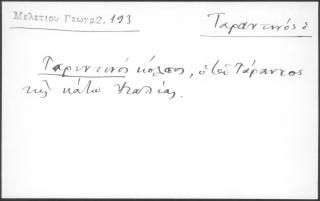 Μελετίου Γεωγρ 2, 193
Ταραντινός ὁ
Ταραντινός κόλπος, ὁ τοῦ Τάραντος
τῆς κάτω Ἰταλίας.